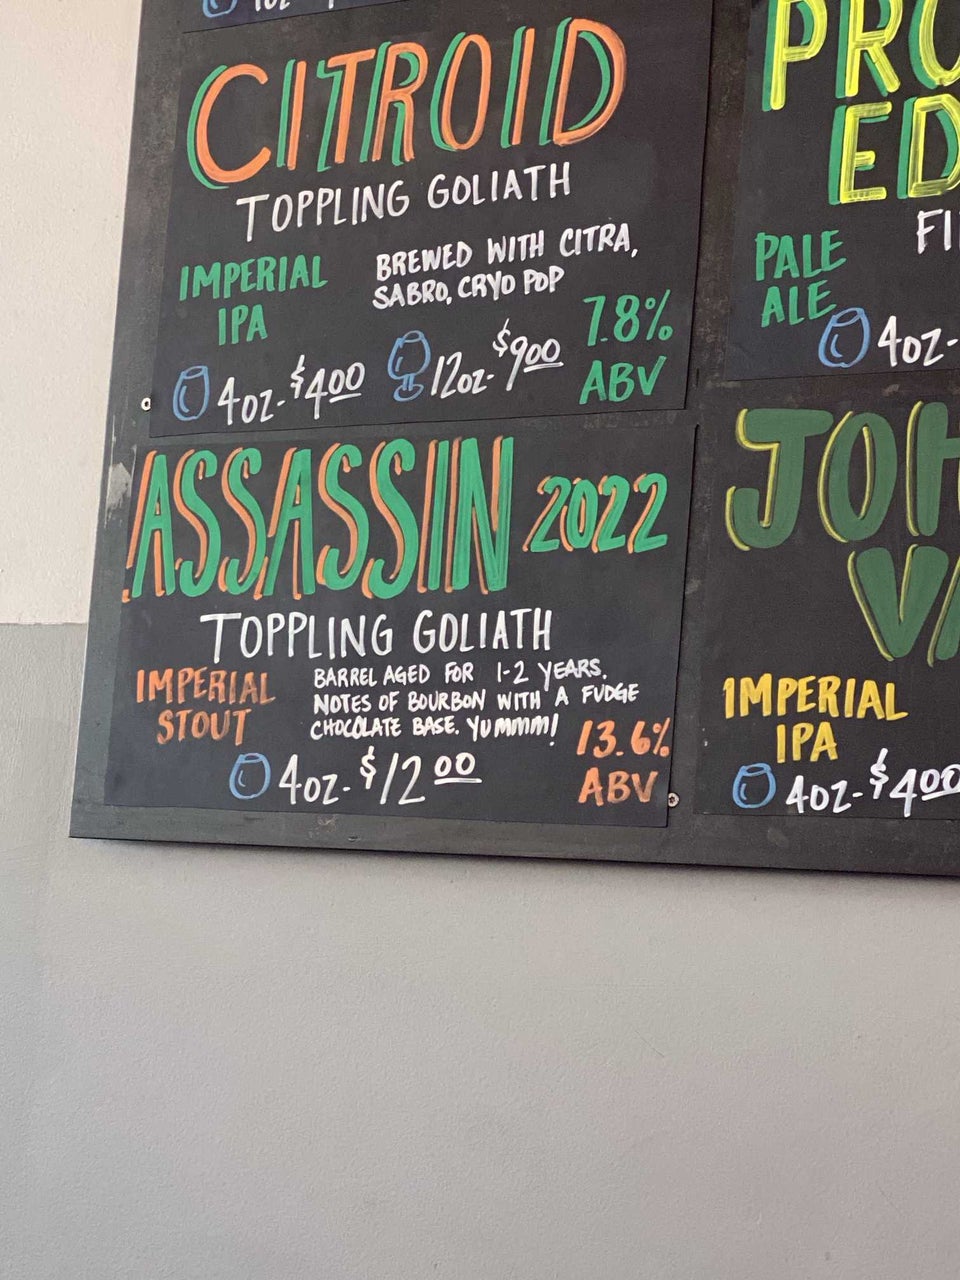 CITROID
TOPPLING GOLIATH
IMPERIAL
IPA
BREWED WITH CITRA,
SABRO, CRYO POP
7.8%
ABV
4oz-$4.00
12oz-$9.00
ASSASSIN 2022
TOPPLING GOLIATH
IMPERIAL
STOUT
BARREL AGED FOR 1-2 YEARS.
NOTES OF BOURBON WITH A FUDGE
CHOCOLATE BASE. YUMMM!
13.6%
ABV
4oz-$12 00
PALE
ALE
4oz-
IMPERIAL
IPA
4oz-$4 00